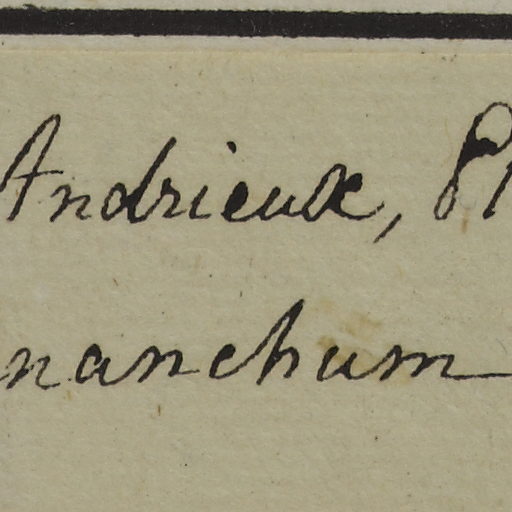 Andrieux, Pl
nanchum